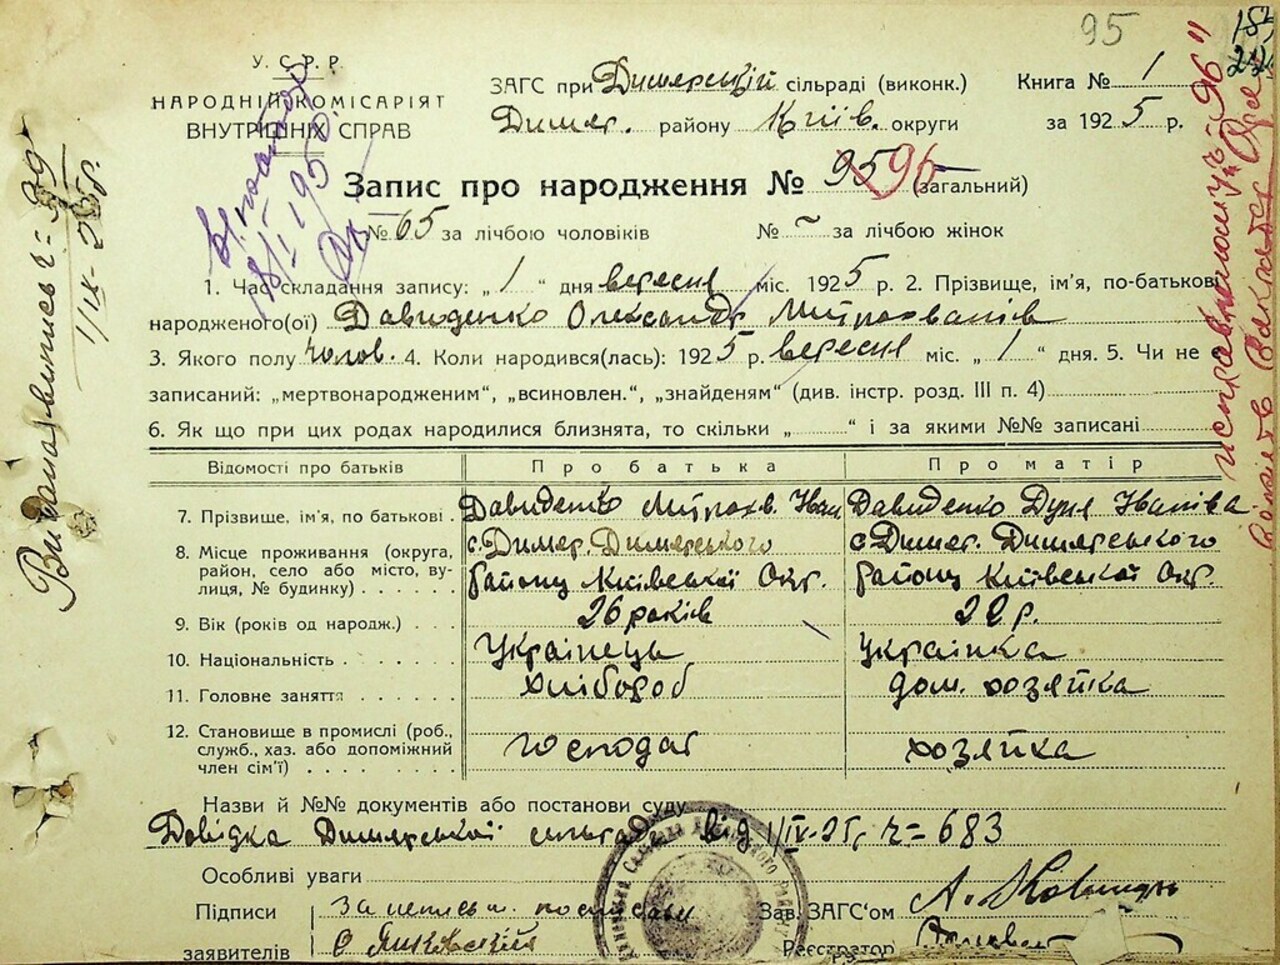 95
У. С. Р. Р.
НАРОДНІЙ КОМІСАРІЯТ
ВНУТРІШНІХ СПРАВ
ЗАГС при Димерській сільраді (виконк.)
Димер. району Київ. округи
Книга № 1
за 1925 р.
Запис про народження № 95 96 (загальний)
№ 65 за лічбою чоловіків № ~ за лічбою жінок
1. Час складання запису: „1“ дня вересня міс. 1925 р. 2. Прізвище, ім'я, по-батькові
народженого(ої) Давиденко Олександр Митрохванів
3. Якого полу чолов. 4. Коли народився(лась): 1925 р. вересня міс. „1“ дня. 5. Чи не
записаний: „мертвонародженим“, „всиновлен.“, „знайденям“ (див. інстр. розд. III п. 4)
6. Як що при цих родах народилися близнята, то скільки „ “ і за якими №№ записані
Відомості про батьків Про батька Про матір
7. Прізвище, ім'я, по батькові . Давиденко Митрохв. Іван Давиденко Дуня Іванівна
8. Місце проживання (округа, район, село або місто, вулиця, № будинку) с. Димер. Димерського с. Димер. Димерського
району Київської Окр. району Київської Окр.
9. Вік (років од народж.) . . . 26 років 22 р.
10. Національність . . . . . . Українець Українка
11. Головне заняття . . . . . . хлібороб дом. хозяйка
12. Становище в промислі (роб., служб., хаз. або допоміжний член сім'ї) . . . . . . господар хозяйка
Назви й №№ документів або постанови суду
Довідка Димерської сільради від 1/IX-25 г. ч= 683
Особливі уваги
Підписи
заявителів
Зав. ЗАГС'ом
Реєстратор
1/IX-25р.
18/I 1950